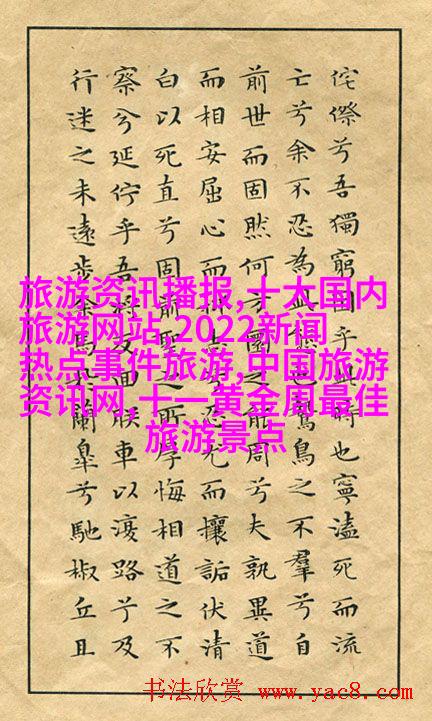 侘傺兮吾獨窮困乎此時也寧溘死而流
亡兮余不忍為此態也鷙鳥之不羣兮自
前世而固然何方圜之能周兮夫孰異道
而相安屈心而抑志兮忍尤而攘詬伏清
白以死直兮固前聖之所厚悔相道之不
察兮延佇乎吾將反回朕車以復路兮及
行迷之未遠步余馬於蘭臯兮馳椒丘且
旅游资讯播报,十大国内
旅游网站,2022新闻
热点事件旅游,中国旅游
资讯网,十一黄金周最佳
旅游景点
书法欣赏 www.yac8.com